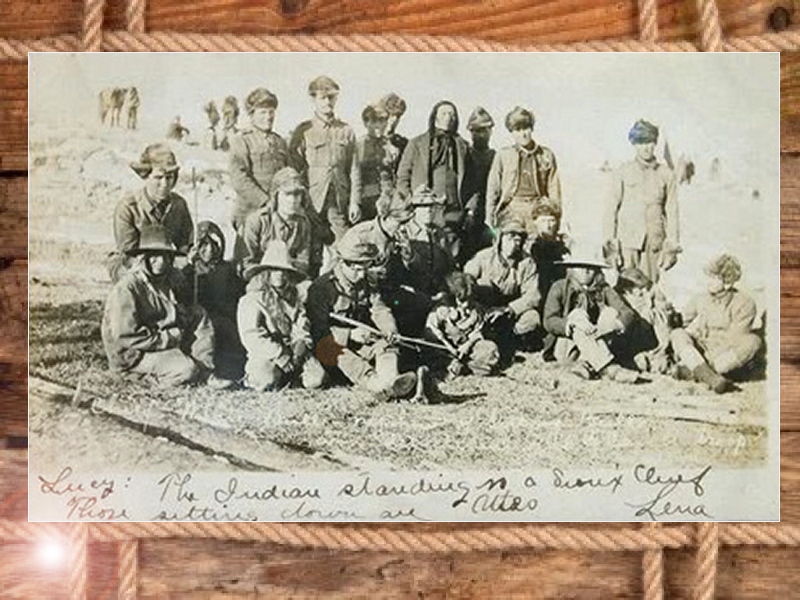 Lucy: The Indian standing is a Sioux Chief
Those sitting down are Utes Lena